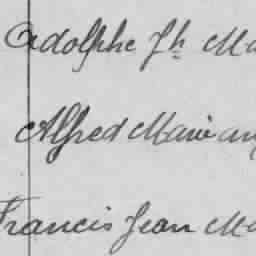 Adolphe Jh Ma
Alfred Marie aug
Francis Jean Ma